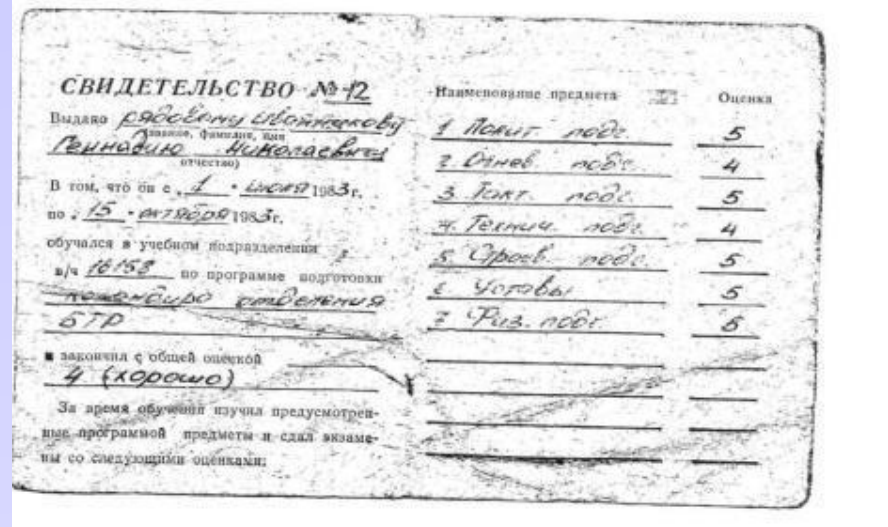 СВИДЕТЕЛЬСТВО № 12
Выдано рядовому
(звание, фамилия, имя
Геннадию Николаевичу
отчество)
В том, что он с „ 1 " июля 1983г.
по „ 15 " октября 1983г.
обучался в учебном подразделении
в/ч 16158 по программе подготовки
командира отделения
БТР
и закончил с общей оценкой
4 (хорошо)
За время обучения изучил предусмотрен-
ные программой предметы и сдал экзаме-
ны со следующими оценками:
Наименование предмета Оценка
1 Полит. подг. 5
2 Огнев. подг. 4
3. Такт. подг. 5
4. Технич. подг. 4
5. Строев. подг. 5
6 Уставы 5
7 Физ. подг. 5